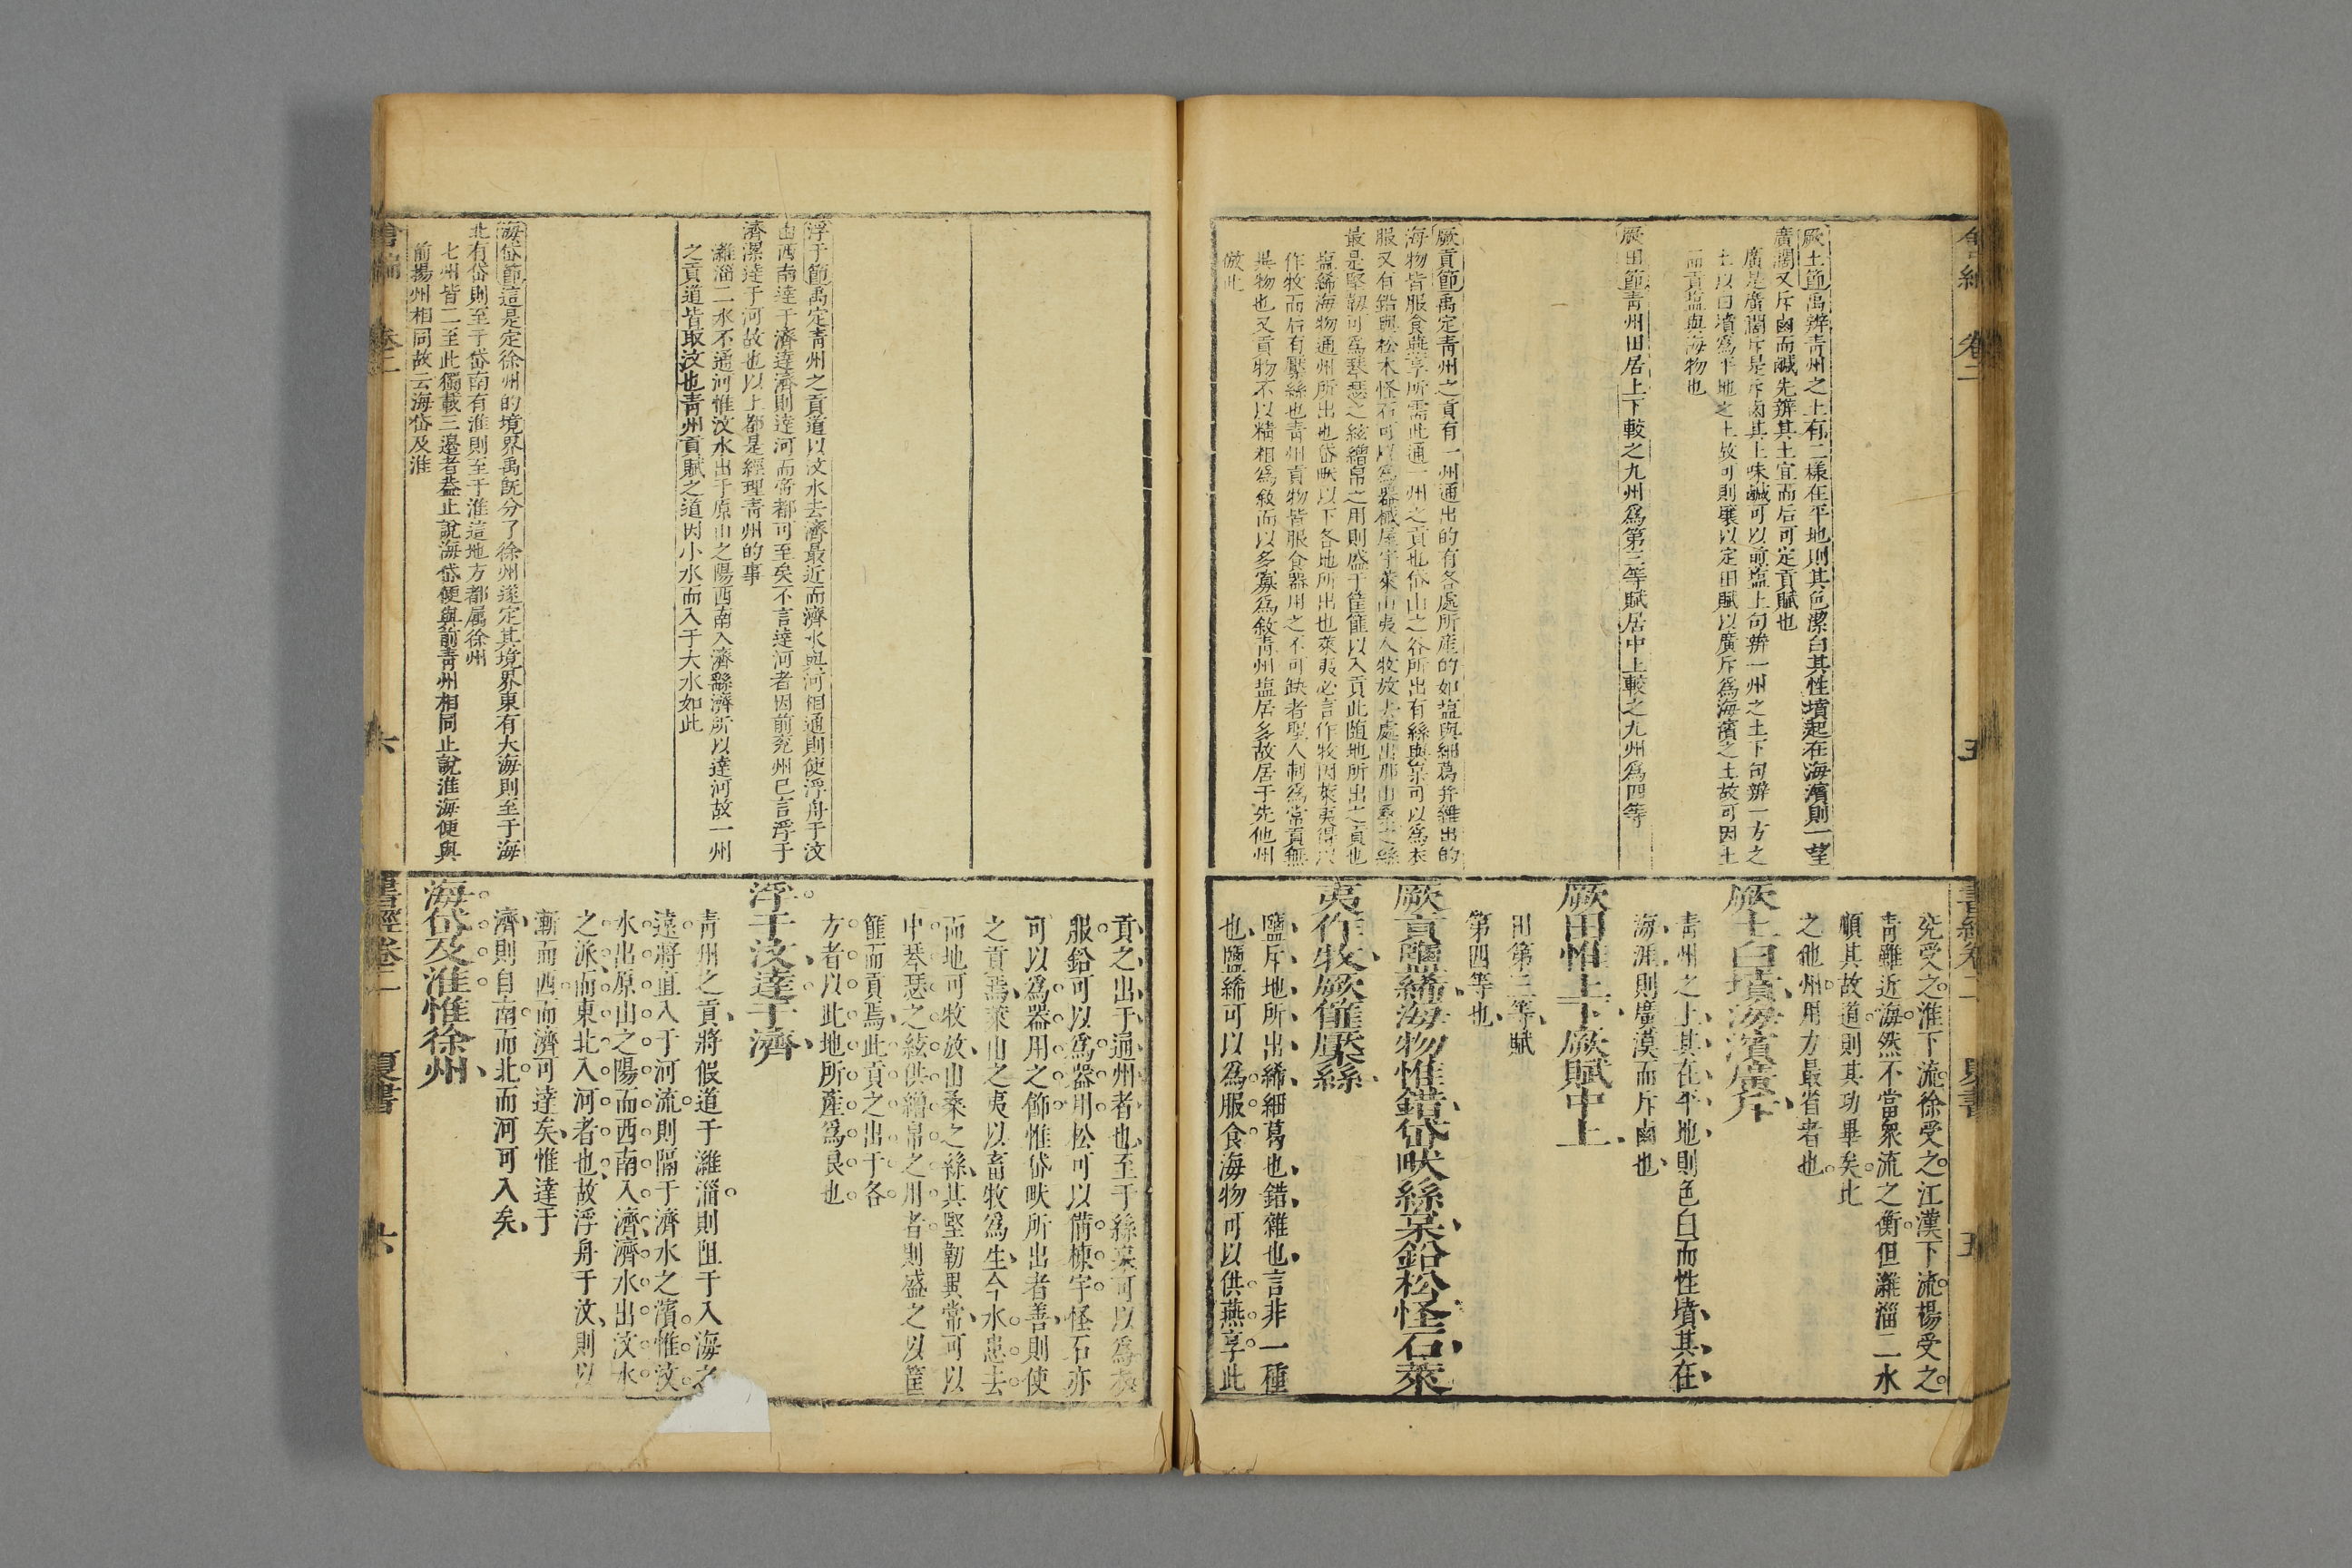 厥土節禹辨青州之土有二樣在平地則其色潔白其性墳起在海濱則一望
廣濶又斥鹵而鹹先辨其土宜而后可定貢賦也
廣是廣濶斥是斥鹵其土味鹹可以煎塩上句辨一州之土下句辨一方之
土以白墳爲平地之土故可則壤以定田賦以廣斥爲海濱之土故可因土
而貢塩與海物也
厥田節青州田居上下較之九州爲第三等賦居中上較之九州爲四等
厥貢節禹定青州之貢有一州通出的有各處所産的如塩與細葛并雜出的
海物皆服食燕享所需此通一州之貢也岱山之谷所出有絲與枲可以爲衣
服又有鉛與松木怪石可以爲器械屋宇萊山夷人牧放去處出那山桑之絲
最是堅韌可爲琴瑟之絃繒帛之用則盛于筐篚以入貢此随地所出之貢也
塩絺海物通州所出也岱畎以下各地所出也萊夷必言作牧因萊夷得以
作牧而后有檿絲也青州貢物皆服食器用之不可缺者聖人制爲常貢無
異物也又貢物不以精粗爲敘而以多寡爲敘青州塩居多故居于先他州
倣此
書經卷二 夏書 五
兗受之淮下流徐受之江漢下流楊受之
青雖近海然不當衆流之衝但濰淄二水
順其故道則其功畢矣此
之他州用力最省者也
厥土白墳海濱廣斥
青州之土其在平地則色白而性墳其在
海涯則廣漠而斥鹵也
厥田惟上下厥賦中上
田第三等賦
第四等也
厥貢鹽絺海物惟錯岱畎絲枲鉛松怪石萊
夷作牧厥篚檿絲
鹽斥地所出絺細葛也錯雜也言非一種
也鹽絺可以爲服食海物可以供燕享此
浮于節禹定青州之貢道以汶水去濟最近而濟水與河相通則使浮舟于汶
由西南達于濟達濟則達河而帝都可至矣不言達河者因前兗州已言浮于
濟漯達于河故也以上都是經理青州的事
濰淄二水不通河惟汶水出于原山之陽西南入濟繇濟所以達河故一州
之貢道皆取汶也青州貢賦之道因小水而入于大水如此
海岱節這是定徐州的境界禹旣分了徐州遂定其境界東有大海則至于海
北有岱則至于岱南有淮則至于淮這地方都属徐州
七州皆二至此獨載三邉者葢止說海岱便與前青州相同止說淮海便與
前揚州相同故云海岱及淮
貢之出于通州者也至于絲枲可以爲衣
服鉛可以爲器用松可以備棟宇怪石亦
可以爲器用之飾惟岱畎所出者善則使
之貢焉萊山之夷以畜牧爲生今水患去
而地可牧放山桑之絲其堅韌異常可以
中琴瑟之絃供繒帛之用者則盛之以筐
篚而貢焉此貢之出于各
方者以此地所產爲良也
浮于汶達于濟
青州之貢將假道于濰淄則阻于入海之
遠將直入于河流則隔于濟水之濱惟汶
水出原山之陽而西南入濟濟水出汶水
之派而東北入河者也故浮舟于汶則以
漸而西而濟可達矣惟達于
濟則自南而北而河可入矣
海岱及淮惟徐州
書經卷二 夏書 六